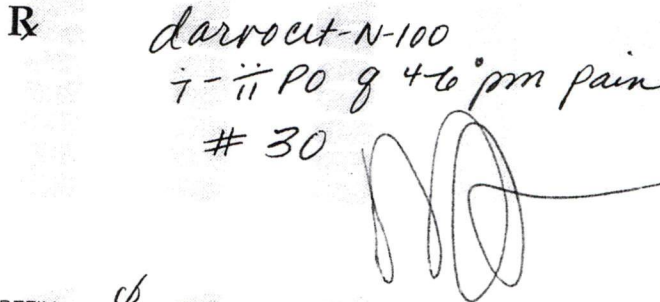 ℞ darvocet-N-100
i-ii PO q 4-6° prn pain
# 30